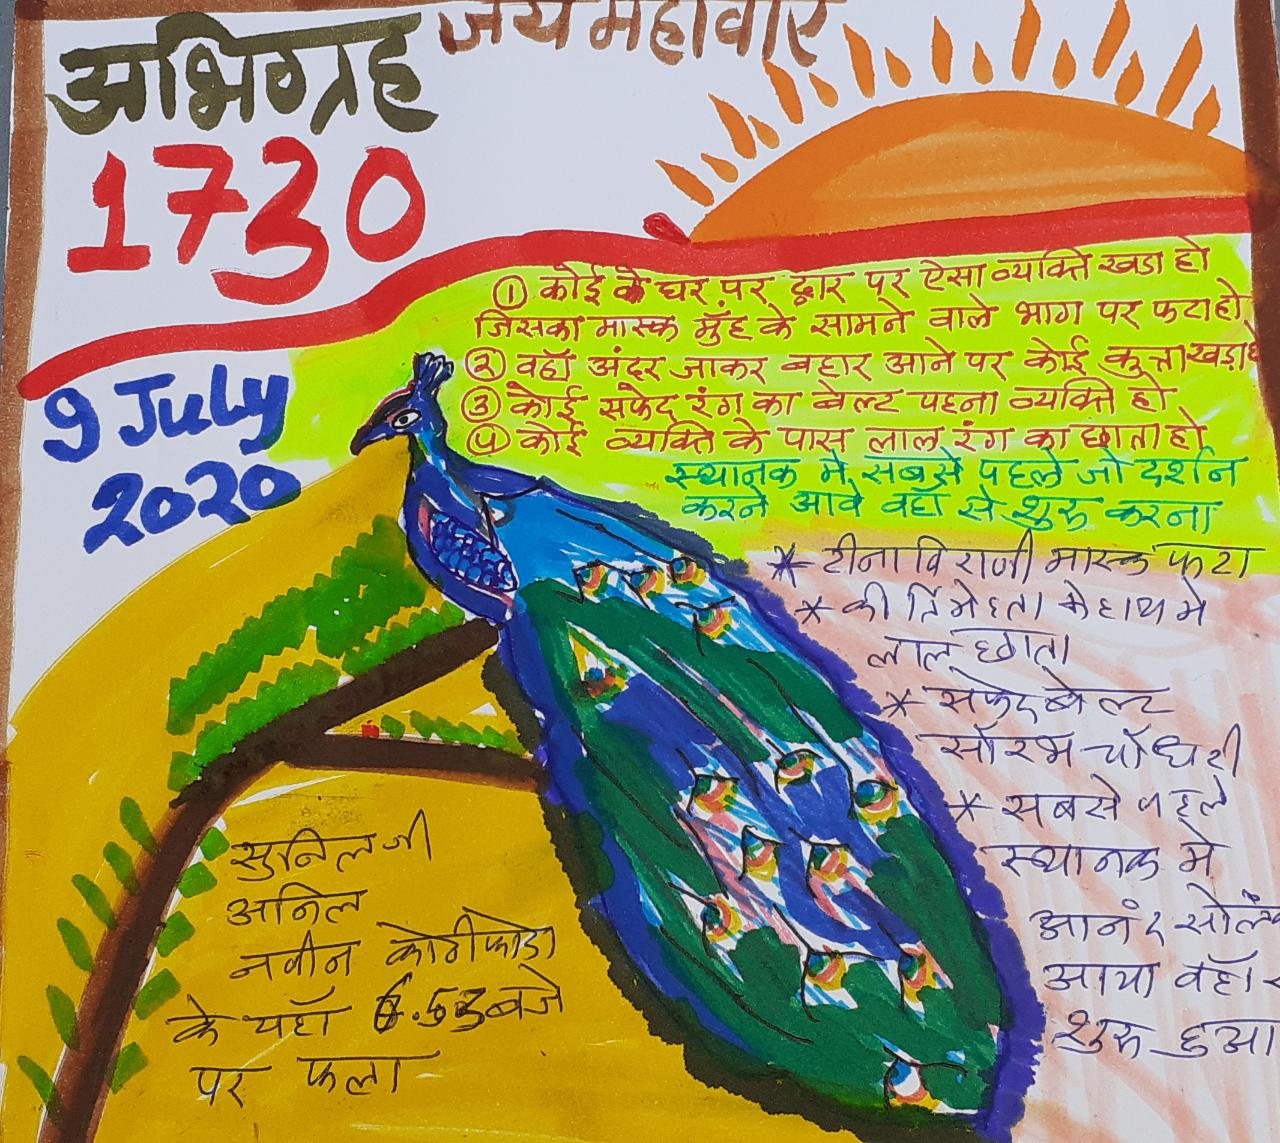 जय महावीर
अभिग्रह
1730
9 July
2020
① कोई के घर पर द्वार पर ऐसा व्यक्ति खडा हो
जिसका मास्क मुँह के सामने वाले भाग पर फटा हो
② वहाँ अंदर जाकर बहार आने पर कोई कुत्ता खड़ा हो
③ कोई सफेद रंग का बेल्ट पहना व्यक्ति हो
④ कोई व्यक्ति के पास लाल रंग का छाता हो
स्थानक मे सबसे पहले जो दर्शन
करने आवे वहा से शुरू करना
* टीना विराणी मास्क फटा
* की के हाथ मे
लाल छाता
* सफेद बेल्ट
सौरभ चौधरी
* सबसे पहले
स्थानक मे
आनंद
आया वहाँ
शुरू हुआ
सुनिल जी
अनिल
नवीन
के यहाँ 6.53 बजे
पर फला